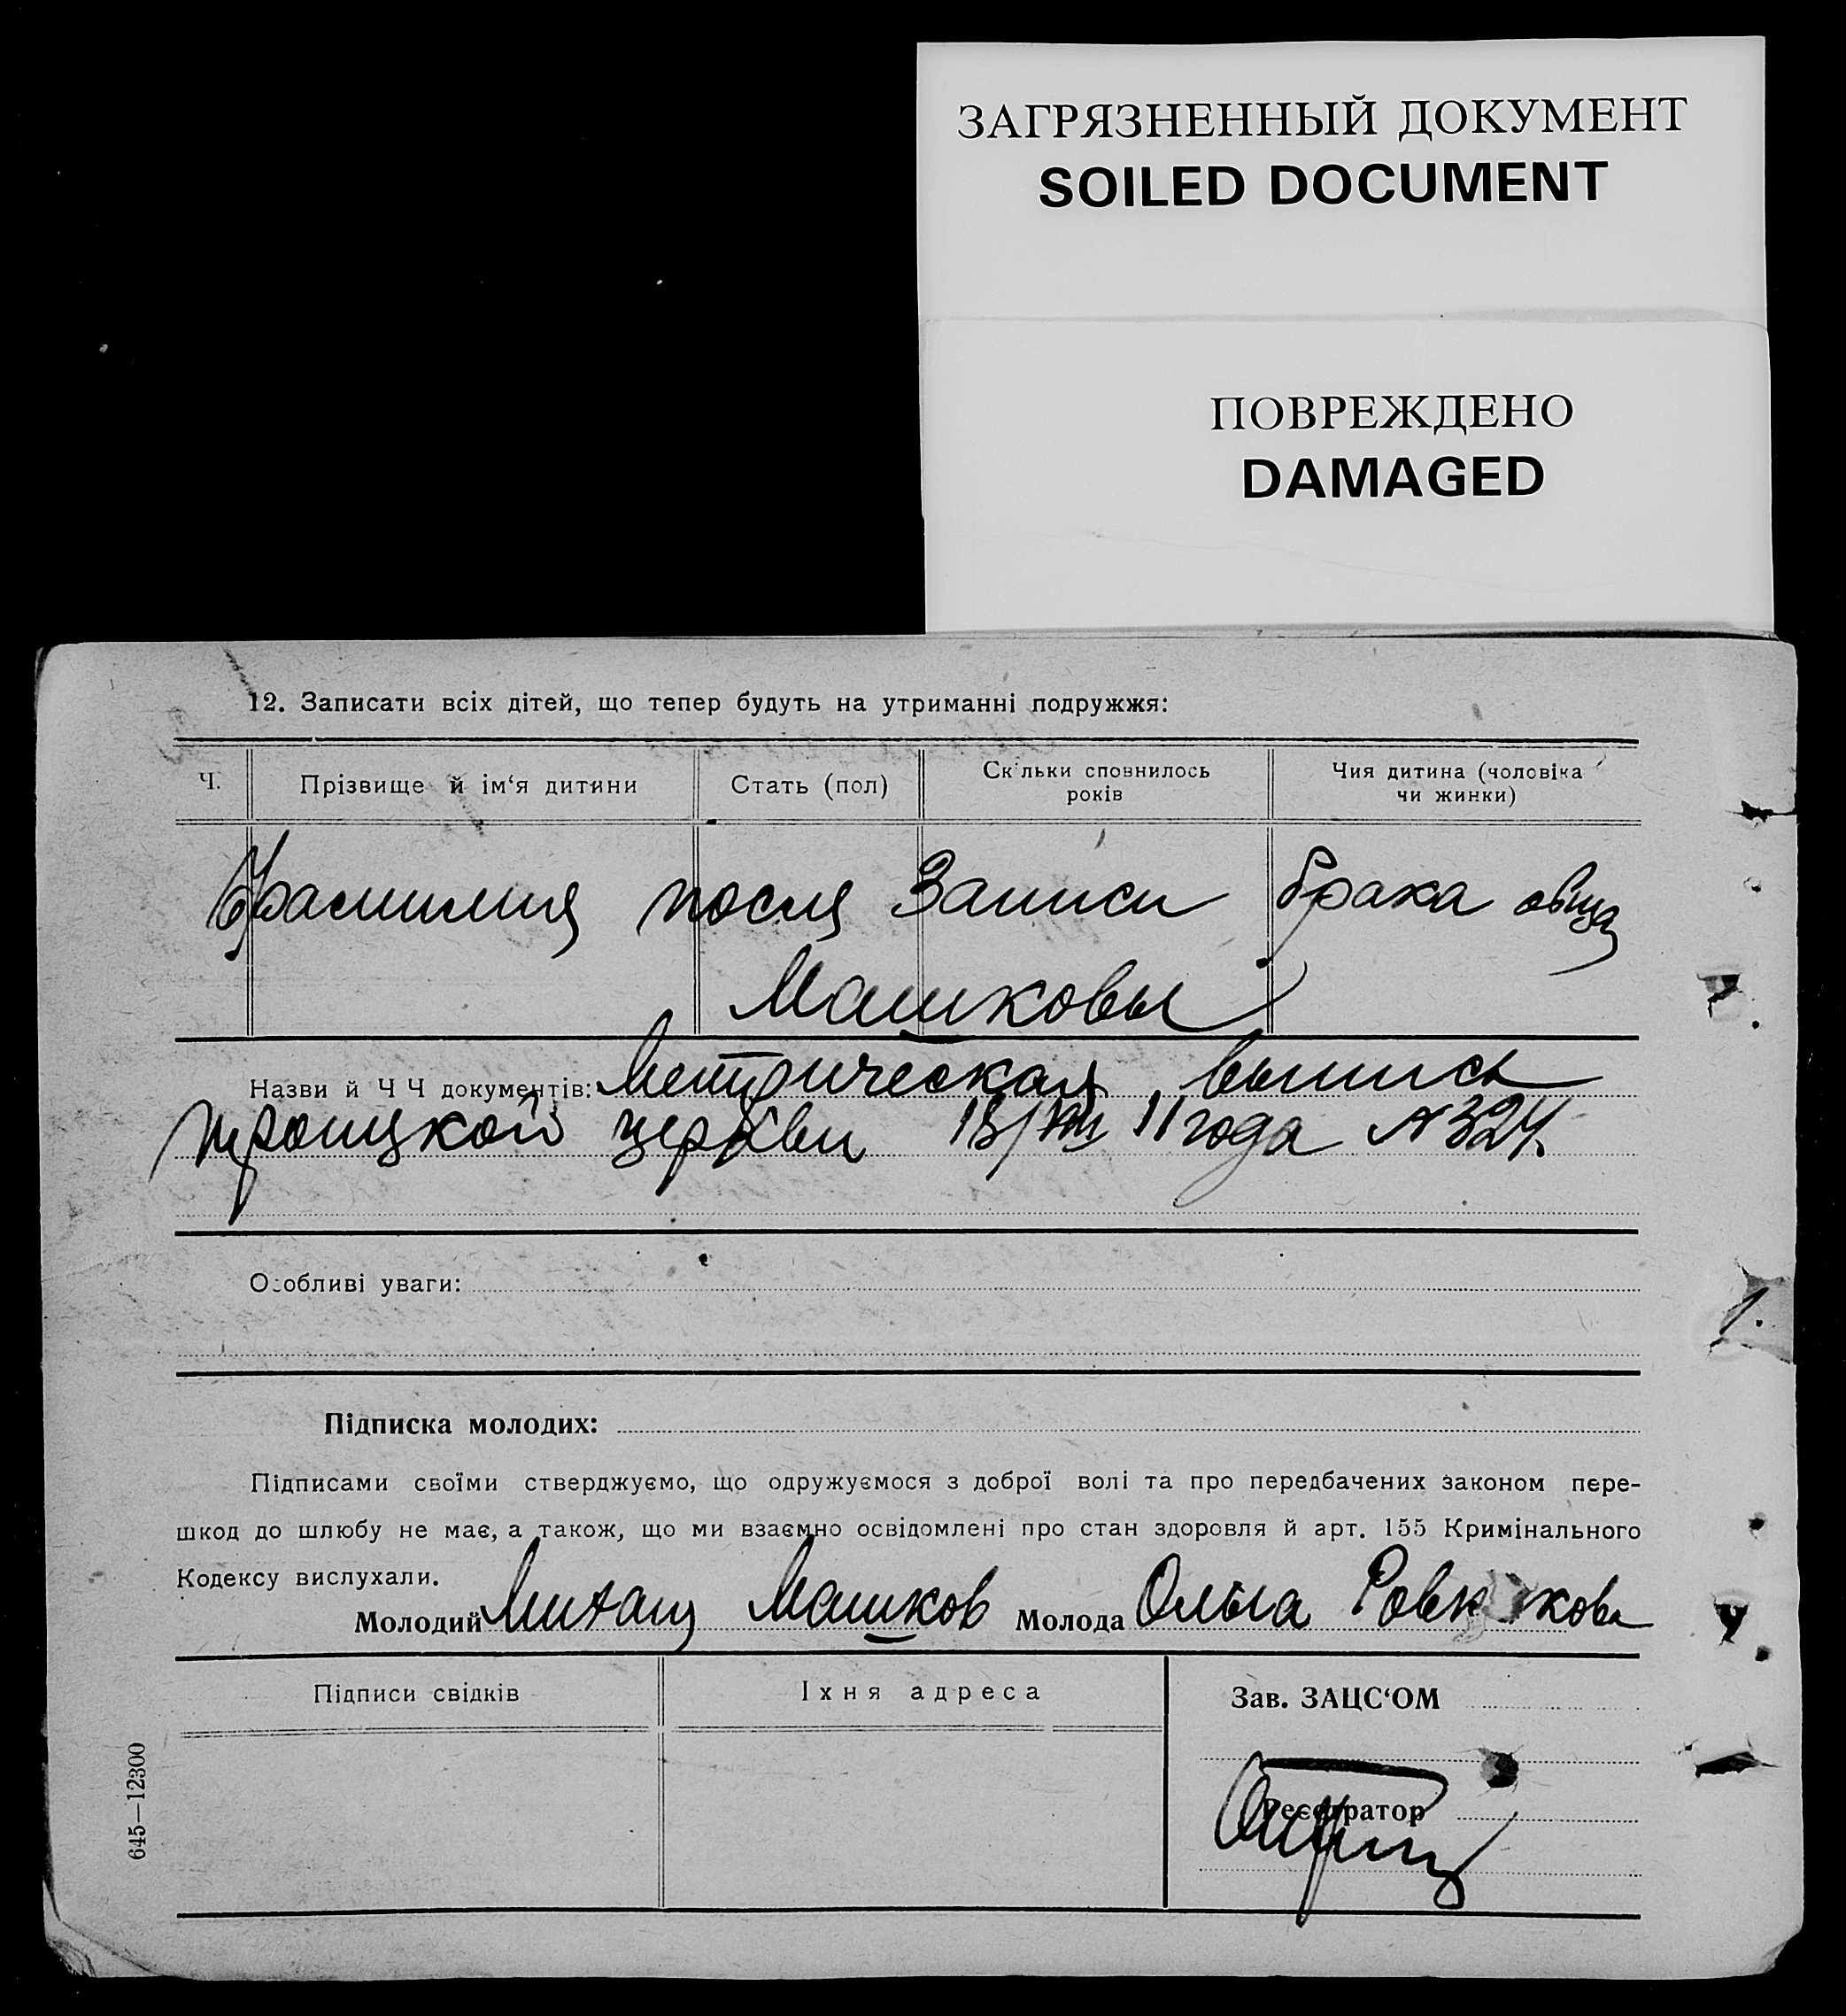 ЗАГРЯЗНЕННЫЙ ДОКУМЕНТ
SOILED DOCUMENT
ПОВРЕЖДЕНО
DAMAGED
12. Записати всіх дітей, що тепер будуть на утриманні подружжя:
Ч. Прізвище й ім‘я дитини Стать (пол) Скільки сповнилось років Чия дитина (чоловіка чи жинки)
Фамилия после Записи брака обща
Машковы
Назви й Ч Ч документів: Метрическая выпись
троицкой церкви 13/VIII 11 года № 324.
Особливі уваги:
Підписка молодих:
Підписами своїми стверджуємо, що одружуємося з доброї волі та про передбачених законом пере-
шкод до шлюбу не має, а також, що ми взаємно освідомлені про стан здоровля й арт. 155 Кримінального
Кодексу вислухали.
Молодий Михаил Машков Молода Ольга
Підписи свідків Їхня адреса Зав. ЗАЦС‘ОМ
Реєстратор
645—12300